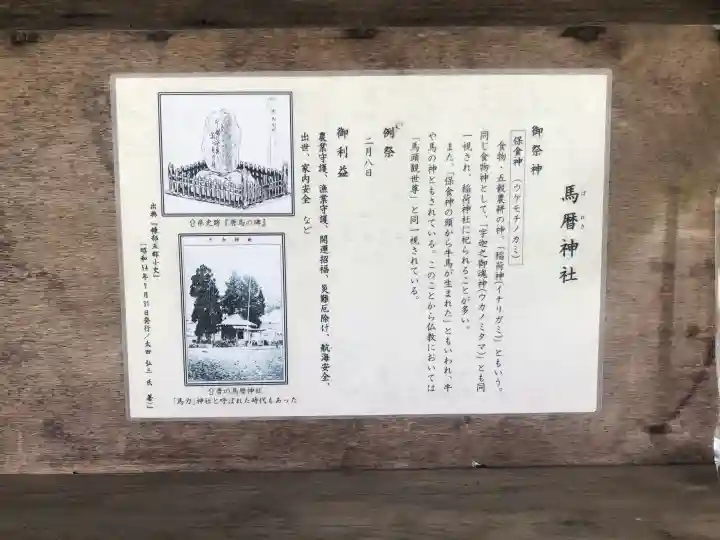 馬暦神社
ばれき
御祭神
保食神 (ウケモチノカミ)
食物・五穀農耕の神、「稲荷神(イナリガミ)」ともいう。
同じ食物神として、「宇迦之御魂神(ウカノミタマ)」とも同
一視され、稲荷神社に祀られることが多い。
また、「保食神の頭から牛馬が生まれた」ともいわれ、牛
や馬の神ともされている。このことから仏教においては
「馬頭観世尊」と同一視されている。
例祭
れい
二月八日
御利益
農業守護、漁業守護、開運招福、災難厄除け、航海安全、
出世、家内安全 など
⇧県史跡『唐馬の碑』
⇧昔の馬暦神社
「馬力」神社と呼ばれた時代もあった
昭和54年7月31日発行/太田 弘三 氏 著